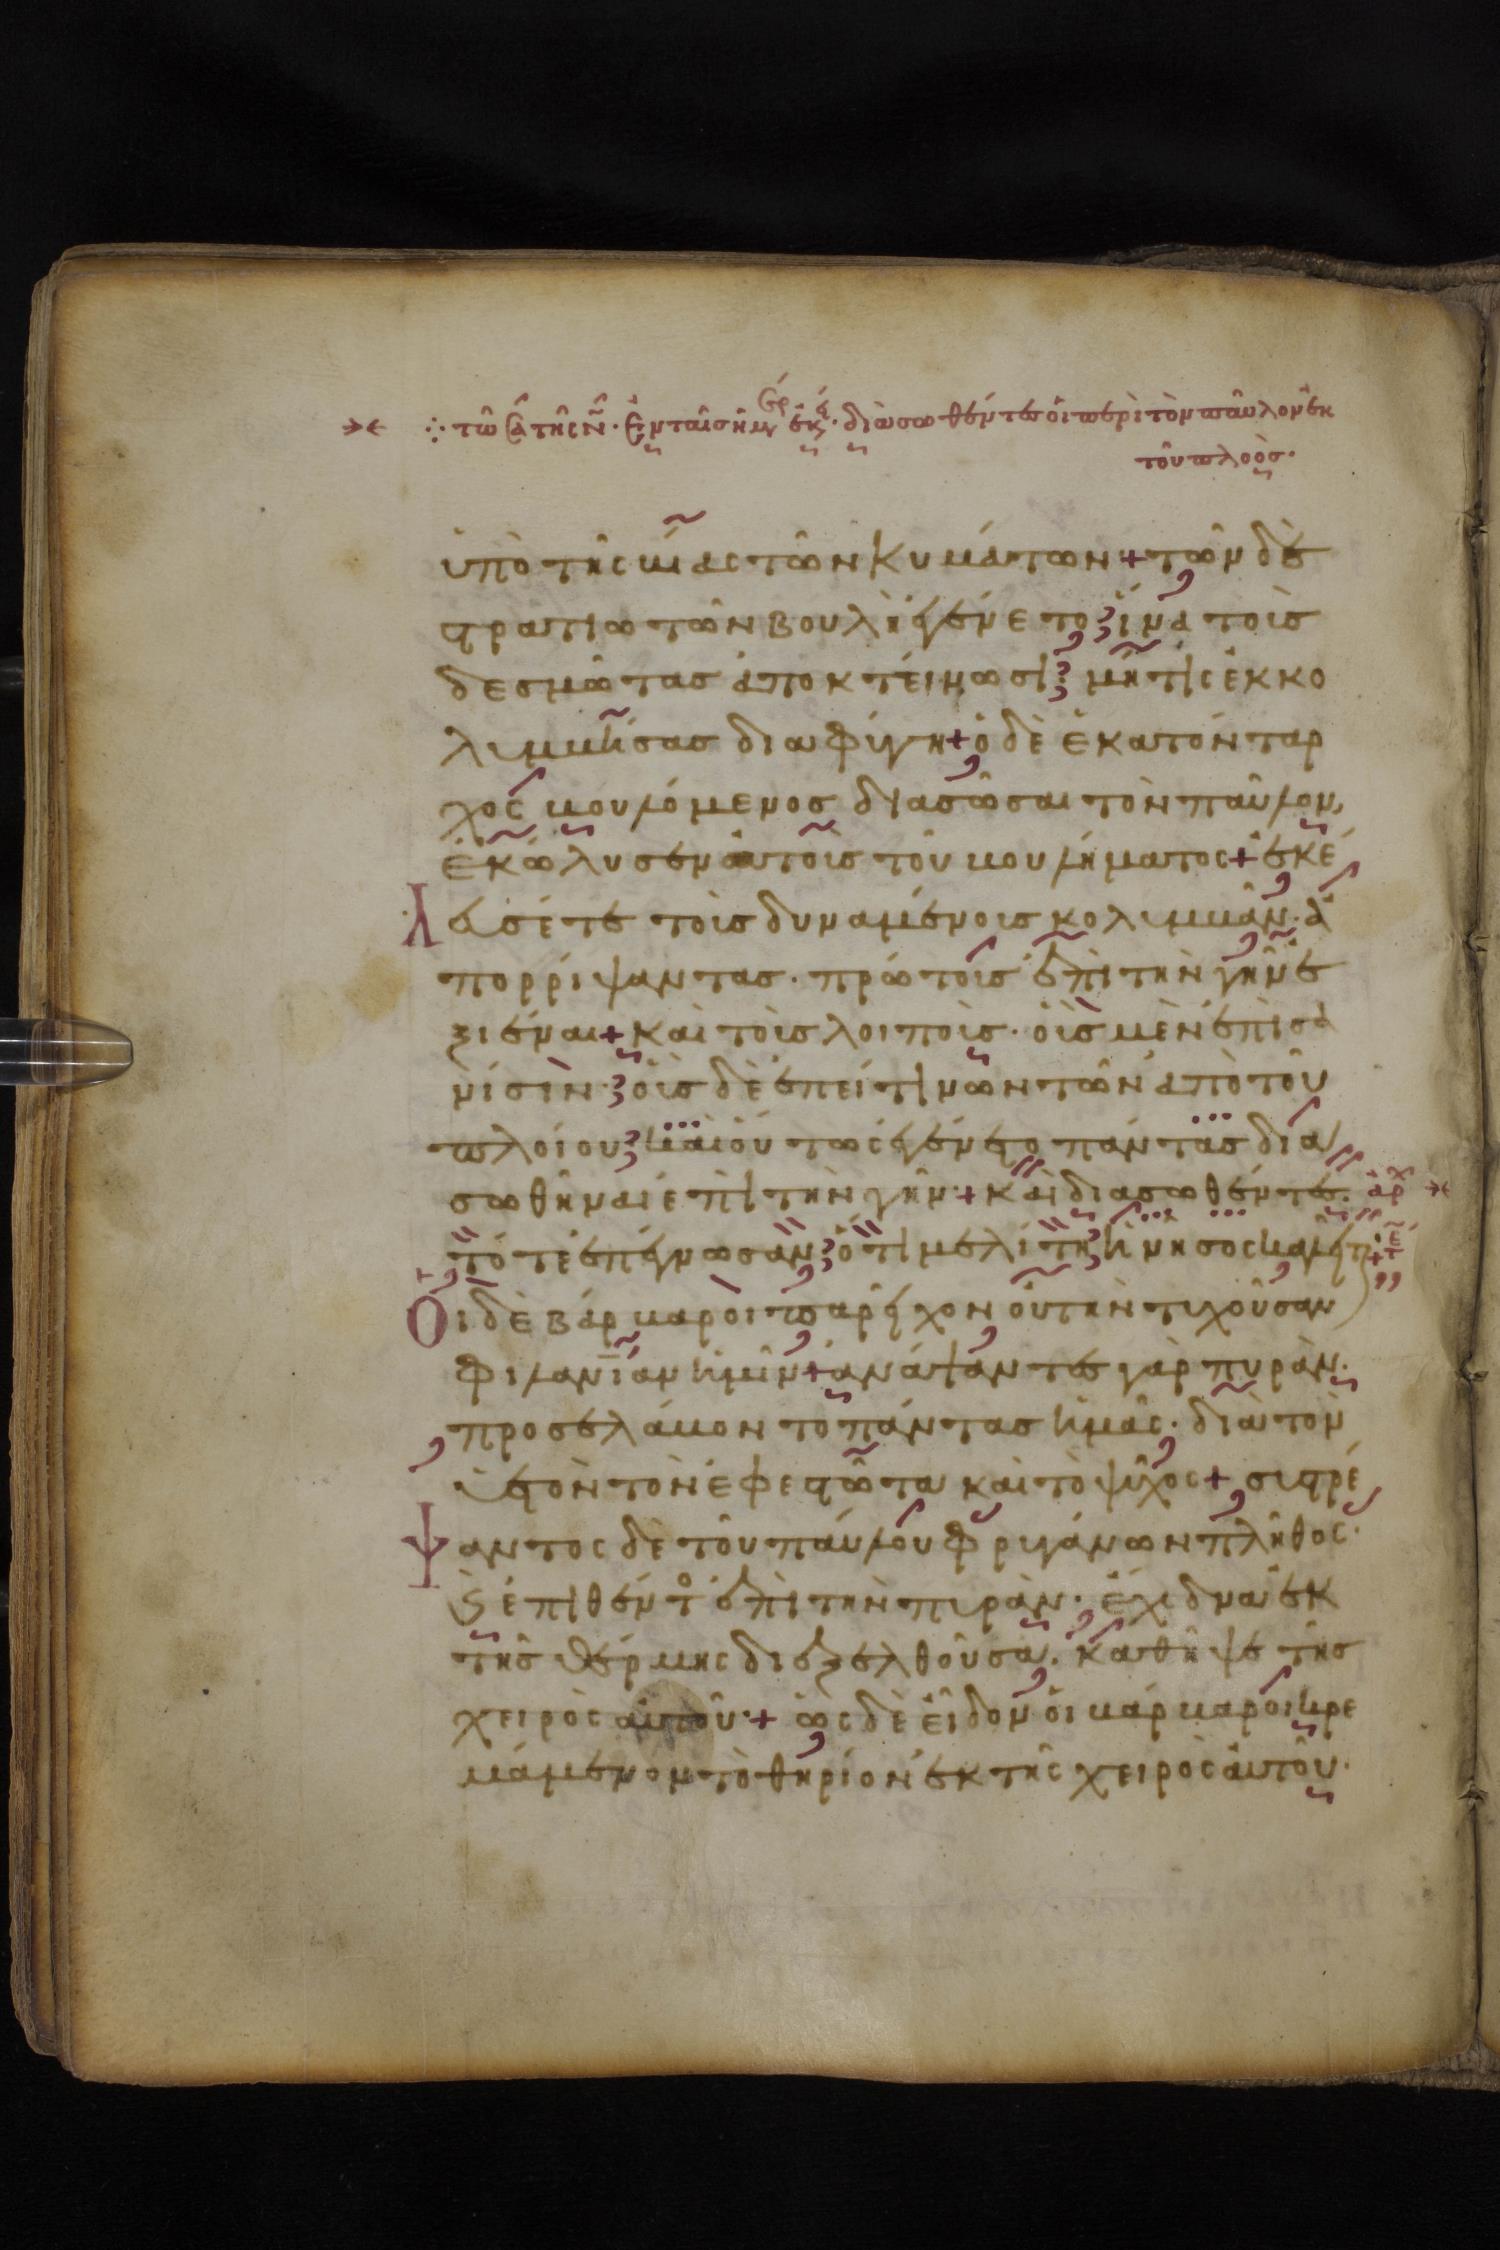 ⁘ τῶ Σα τῆς Ν̑. Ἐν ταῖς ἡμ ἐκ. διασωθέντες οἱ περὶ τὸν παῦλον ἐκ
τοῦ πλοὸς.
ὑπὸ τῆς βίας τῶν κυμάτων + τῶν δὲ
στρατιωτῶν βουλὴ ἐγένετο ἵνα τοὶς
δεσμῶτας ἀποκτείνωσι μήτις ἐκκο
λιμβήσας διαφύγη + ὁ δὲ ἑκατόνταρ
χος βουλόμενος διασῶσαι τὸν παῦλον,
ἐκώλυσεν αὐτοὶς τοῦ βουλήματος + ἐκέ
λευσέ τε τοὶς δυναμένοις κολιμβᾶν. ἀ
πορρίψαντας. πρώτοις ἐπὶ τὴν γῆν ἐ
ξιέναι + καὶ τοὶς λοιποὶς. οἷς μὲν ἐπὶ σα
νίσιν οἷς δὲ ἐπεί τινων τῶν ἀπὸ τοῦ
πλοίου καὶ οὕτως ἐγένετο πάντας δια
σωθῆναι ἐπὶ τὴν γῆν + καὶ διασωθέντες. ἀρχ
τότε ἐπέγνωσαν ὅτι μελίτη ἡ νῆσος καλεῖται +
Οἱ δὲ βάρβαροι παρεῖχον οὐ τὴν τυχοῦσαν
φιλανίαν ἡμῖν + ἀνάψαντες γὰρ πυρὰν.
προσελάβοντο πάντας ἡμᾶς. διὰ τὸν
ὑετὸν τὸν ἐφεστῶτα καὶ τὸ ψῦχος + συστρέ
Ψαντος δὲ τοῦ παύλου φρυγάνων πλῆθος.
ϗ ἐπιθέντο ἐπὶ τὴν πυρὰν. ἔχιδνα ἐκ
τῆς θέρμης διεξελθοῦσα. καθῆψε τῆς
χειρὸς αὐτοῦ + ὡς δὲ εἶδον οἱ βάρβαροι κρε
μάμενον τὸ θηρίον ἐκ τῆς χειρὸς αὐτοῦ.